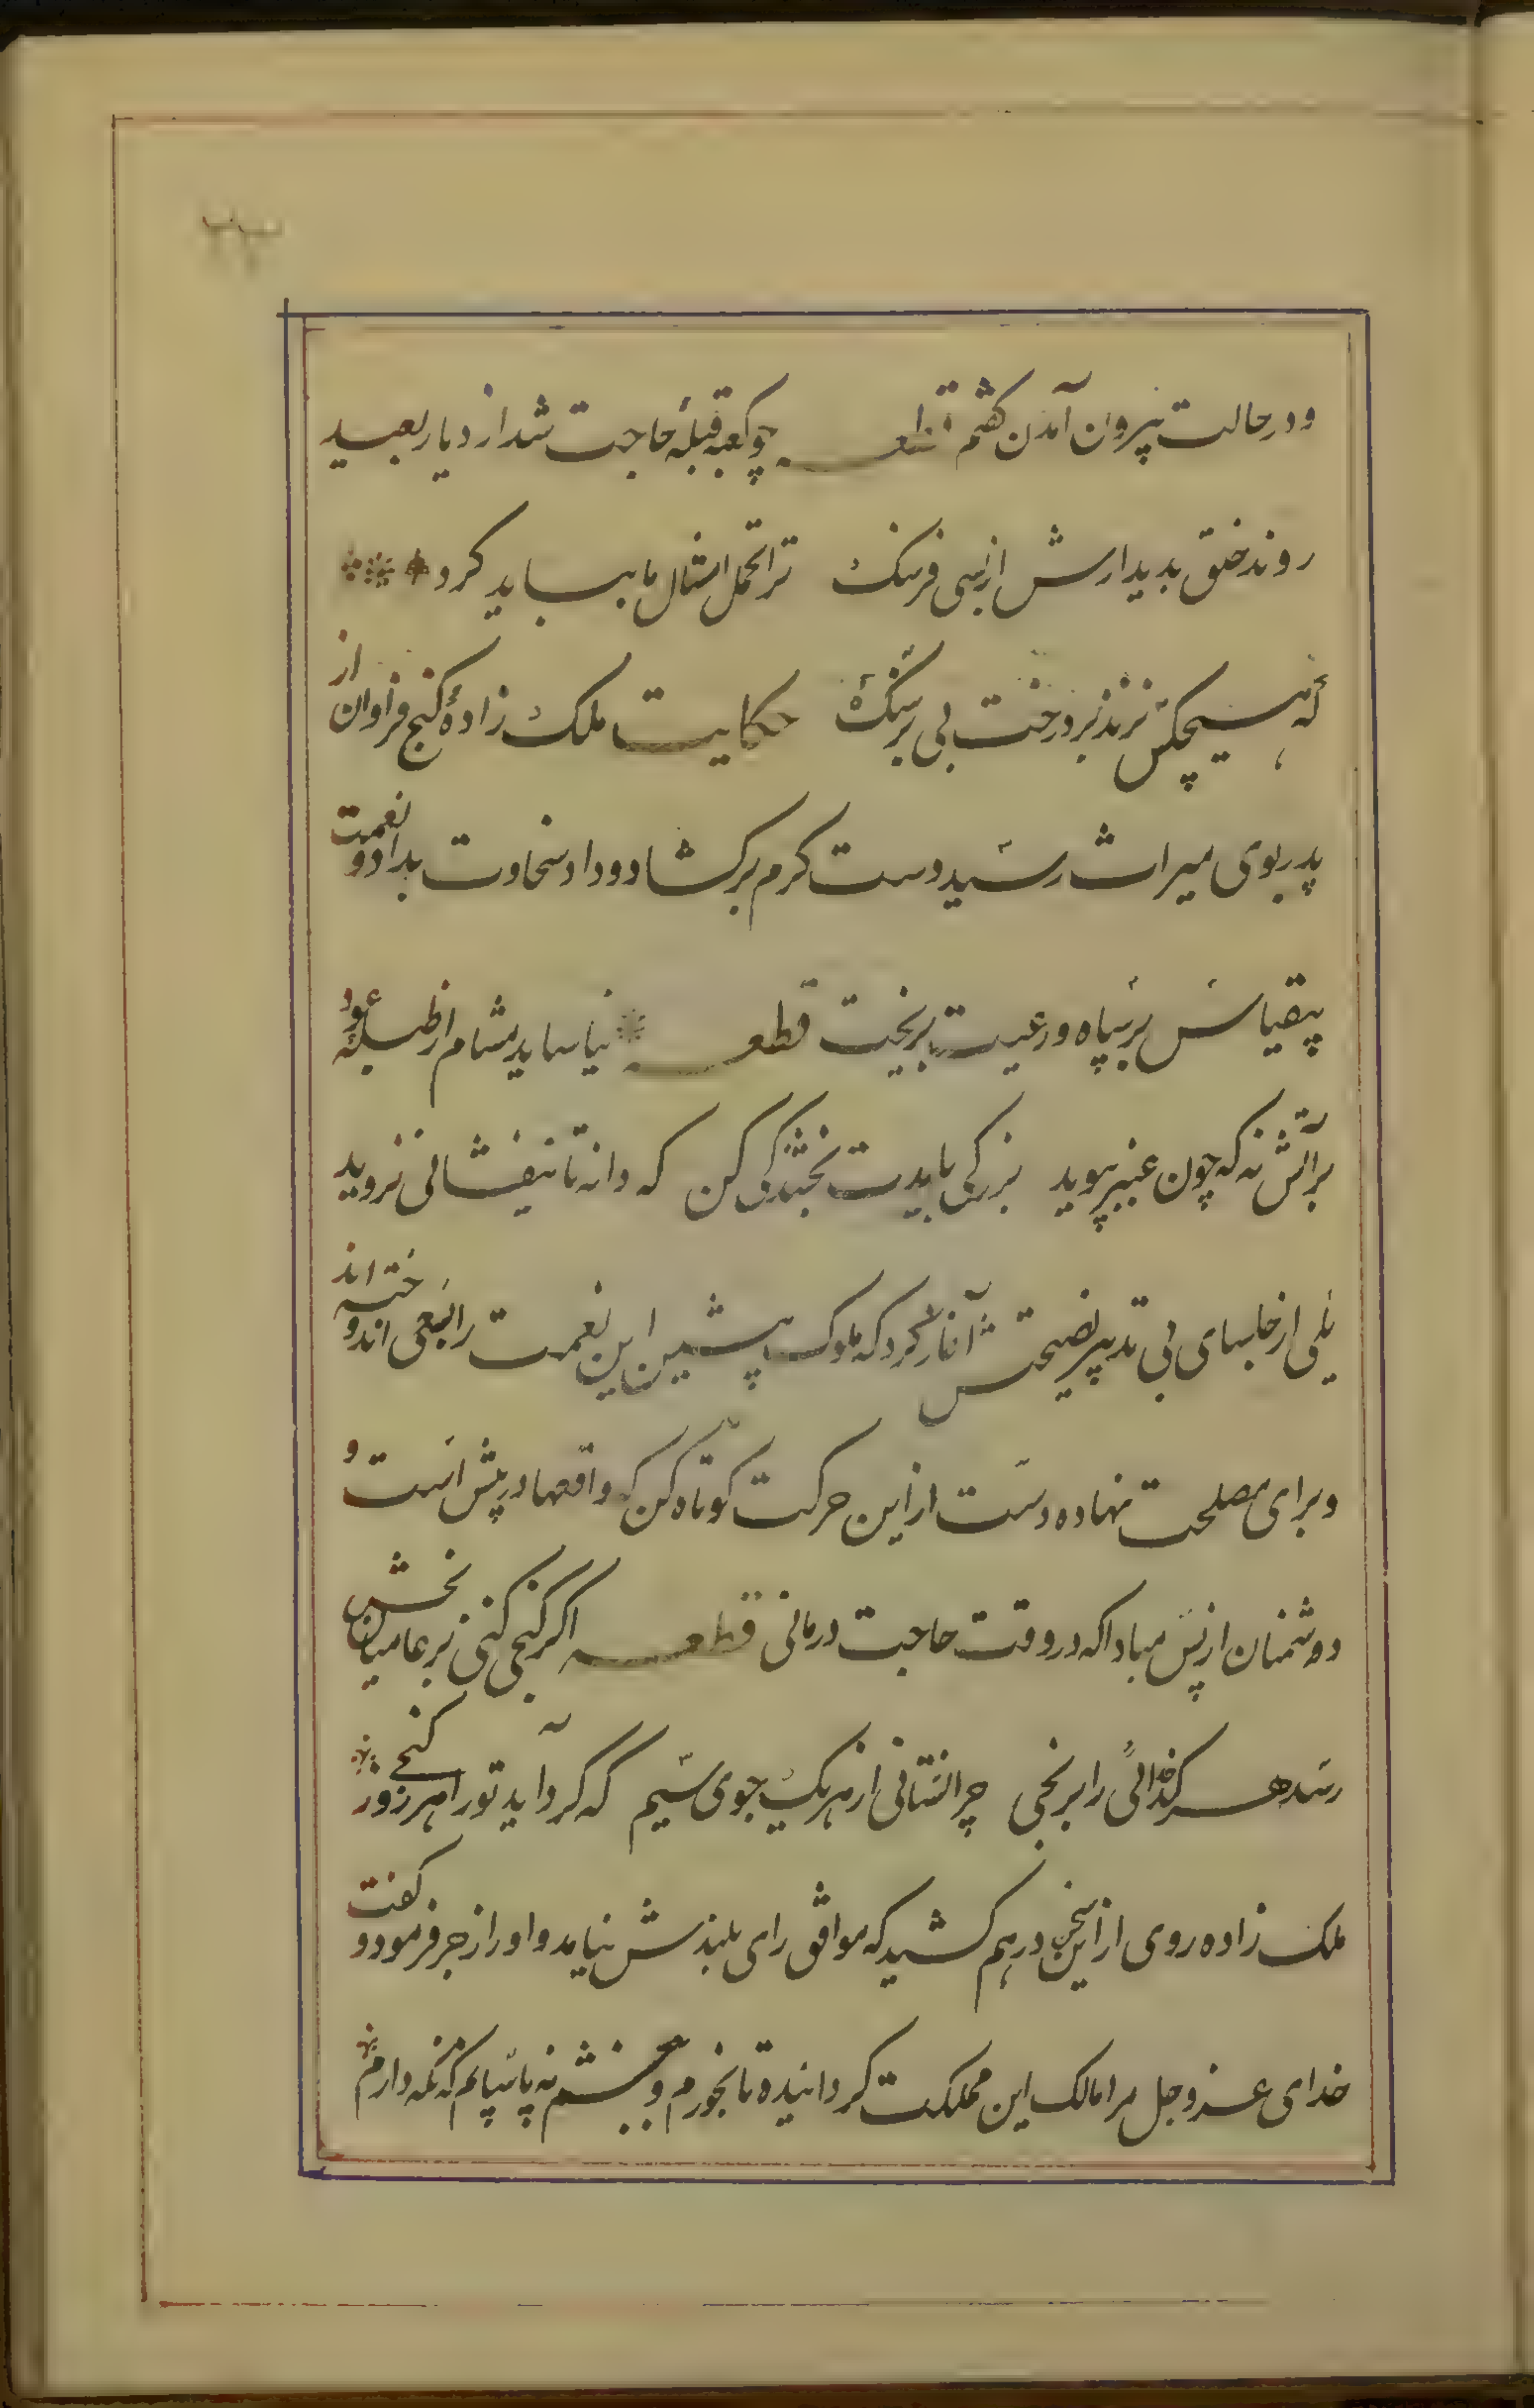 ۲۳
ودرحالت بیرون آمدن گفتم قطعه چو کعبه قبلهٔ حاجت شد از دیار بعید
روند خلق بدیدارش از بسی فرسنک ترا تحمل امثال ما بباید کرد
که هیچکس نزند بر درخت بی بر سنک حکایت ملک زادهٔ کنج فراوان از
پدر بوی میراث رسید دست کرم برکشاد و داد سخاوت بداد و نعمت
بیقیاس بر سپاه و رعیت بریخت قطعه نیاساید مشام از طبلهٔ عود
بر آتش نه که چون عنبر ببوید بزرکی بایدت بخشندکی کن که دانه تا نیفشانی نروید
یکی از جلسای بی تدبیر نصیحتش آغاز کرد که ملوک پیشین این نعمت را بسعی اندوخته اند
و برای مصلحت نهاده دست از این حرکت کوتاه کن که واقعها در پیش است و
دوشمنان از پس مبادا که در وقت حاجت درمانی قطعه اکر کنجی کنی بر عامیان بخش
رسد هر کدخدائی را برنجی چرا نستانی از هر یک جوی سیم که کرد آید تو را هر روز کنجی
ملک زاده روی از این سخن درهم کشید که موافق رای بلندش نیامد و او را زجر فرمود و کفت
خدای عزوجل مرا مالک این مملکت کردانیده تا بخورم و ببخشم نه پاسبانم که نکه دارم